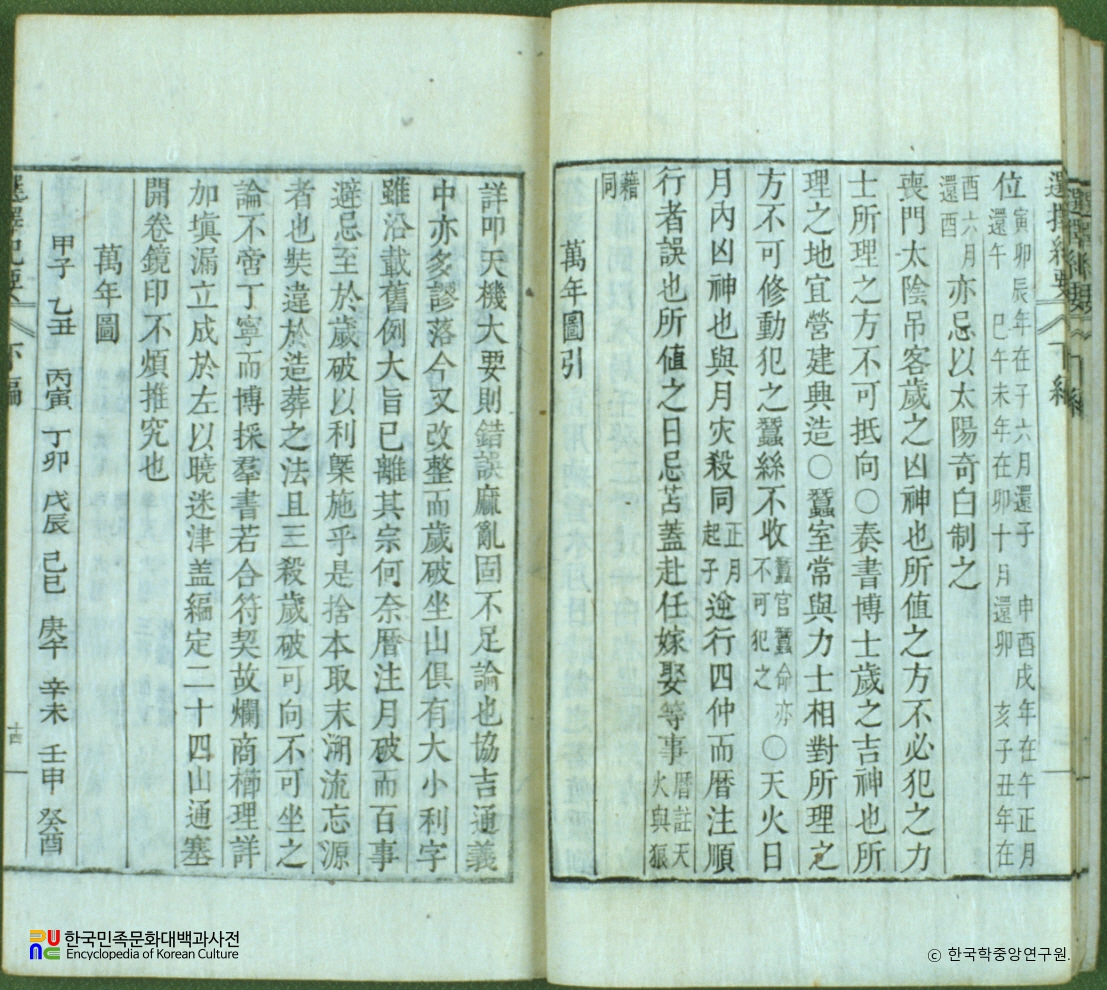 選擇紀要 下編
位 寅卯辰年在子六月還子 申酉戌年在午正月
還午 巳午未年在卯十月還卯 亥子丑年在
酉六月
還酉 亦忌以太陽奇白制之
喪門太陰吊客歲之凶神也所值之方不必犯之力
士所理之方不可抵向○奏書博士歲之吉神也所
理之地宜營建興造○蠶室常與力士相對所理之
方不可修動犯之蠶絲不收 蠶官蠶命亦
不可犯之 ○天火日
月內凶神也與月灾殺同 正月
起子 逆行四仲而曆注順
行者誤也所値之日忌苫蓋赴任嫁娶等事 曆註天
火與狼
藉
同
萬年圖引
詳叩天機大要則錯誤麻亂固不足論也協吉通義
中亦多謬落今又改整而歲破坐山俱有大小利字
雖沿載舊例大旨已離其宗何奈曆注月破而百事
避忌至於歲破以利槩施乎是捨本取末溯流忘源
者也奘違於造葬之法且三殺歲破可向不可坐之
論不啻丁寧而博採羣書若合符契故爛商櫛理詳
加塡漏立成於左以曉迷津盖編定二十四山通塞
開卷鏡印不煩推究也
萬年圖
甲子 乙丑 丙寅 丁卯 戊辰 己巳 庚午 辛未 壬申 癸酉
選擇紀要 下編
十四
한국민족문화대백과사전
Encyclopedia of Korean Culture
© 한국학중앙연구원.